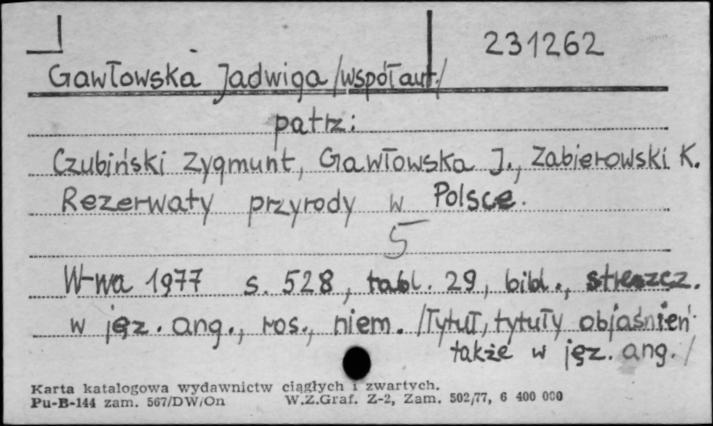 231262
Gawłowska Jadwiga /współaut./
patrz:
Czubiński Zygmunt, Gawłowska J., Zabierowski K.
Rezerwaty przyrody w Polsce.
5
W-wa 1977 s. 528, tabl. 29, bibl., streszcz.
w jęz. ang., ros., niem. /Tytuł, tytuły objaśnień
także w jęz. ang./
Karta katalogowa wydawnictw ciągłych i zwartych.
Pu-B-144 zam. 567/DW/On W.Z.Graf. Z-2, Zam. 502/77, 6 400 000